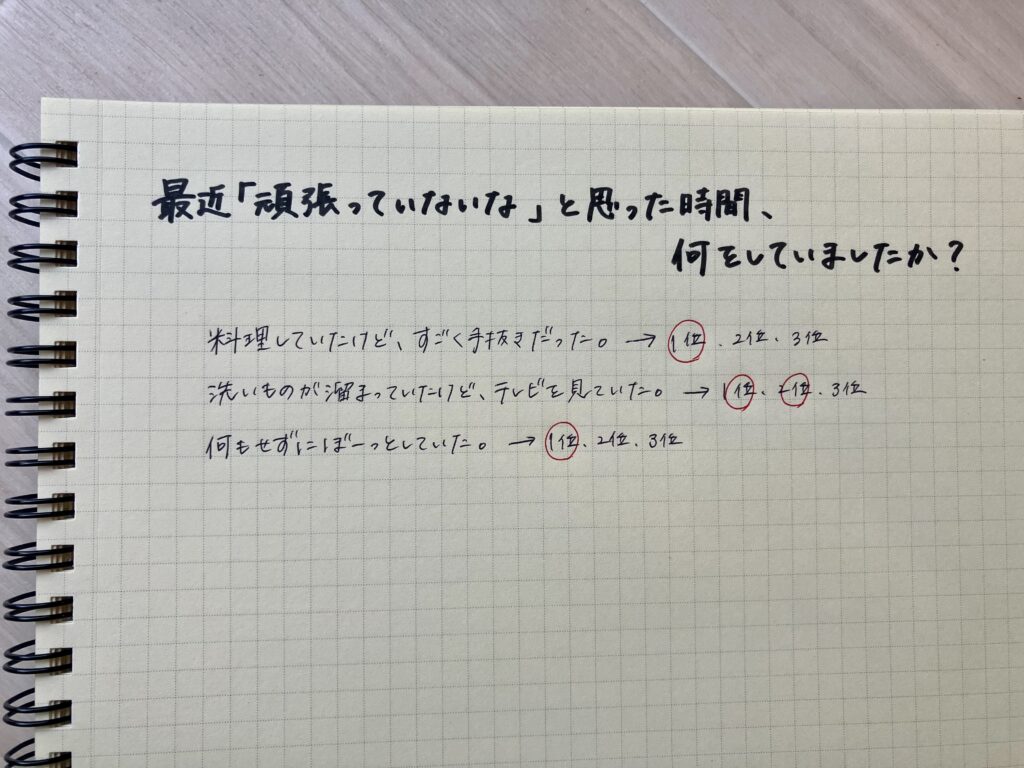 最近「頑張っていないな」と思った時間、
何をしていましたか？
料理していたけど、すごく手抜きだった。→ 1位、2位、3位
洗いものが溜まっていたけど、テレビを見ていた。→ 1位、2位、3位
何もせずにぼーっとしていた。→ 1位、2位、3位